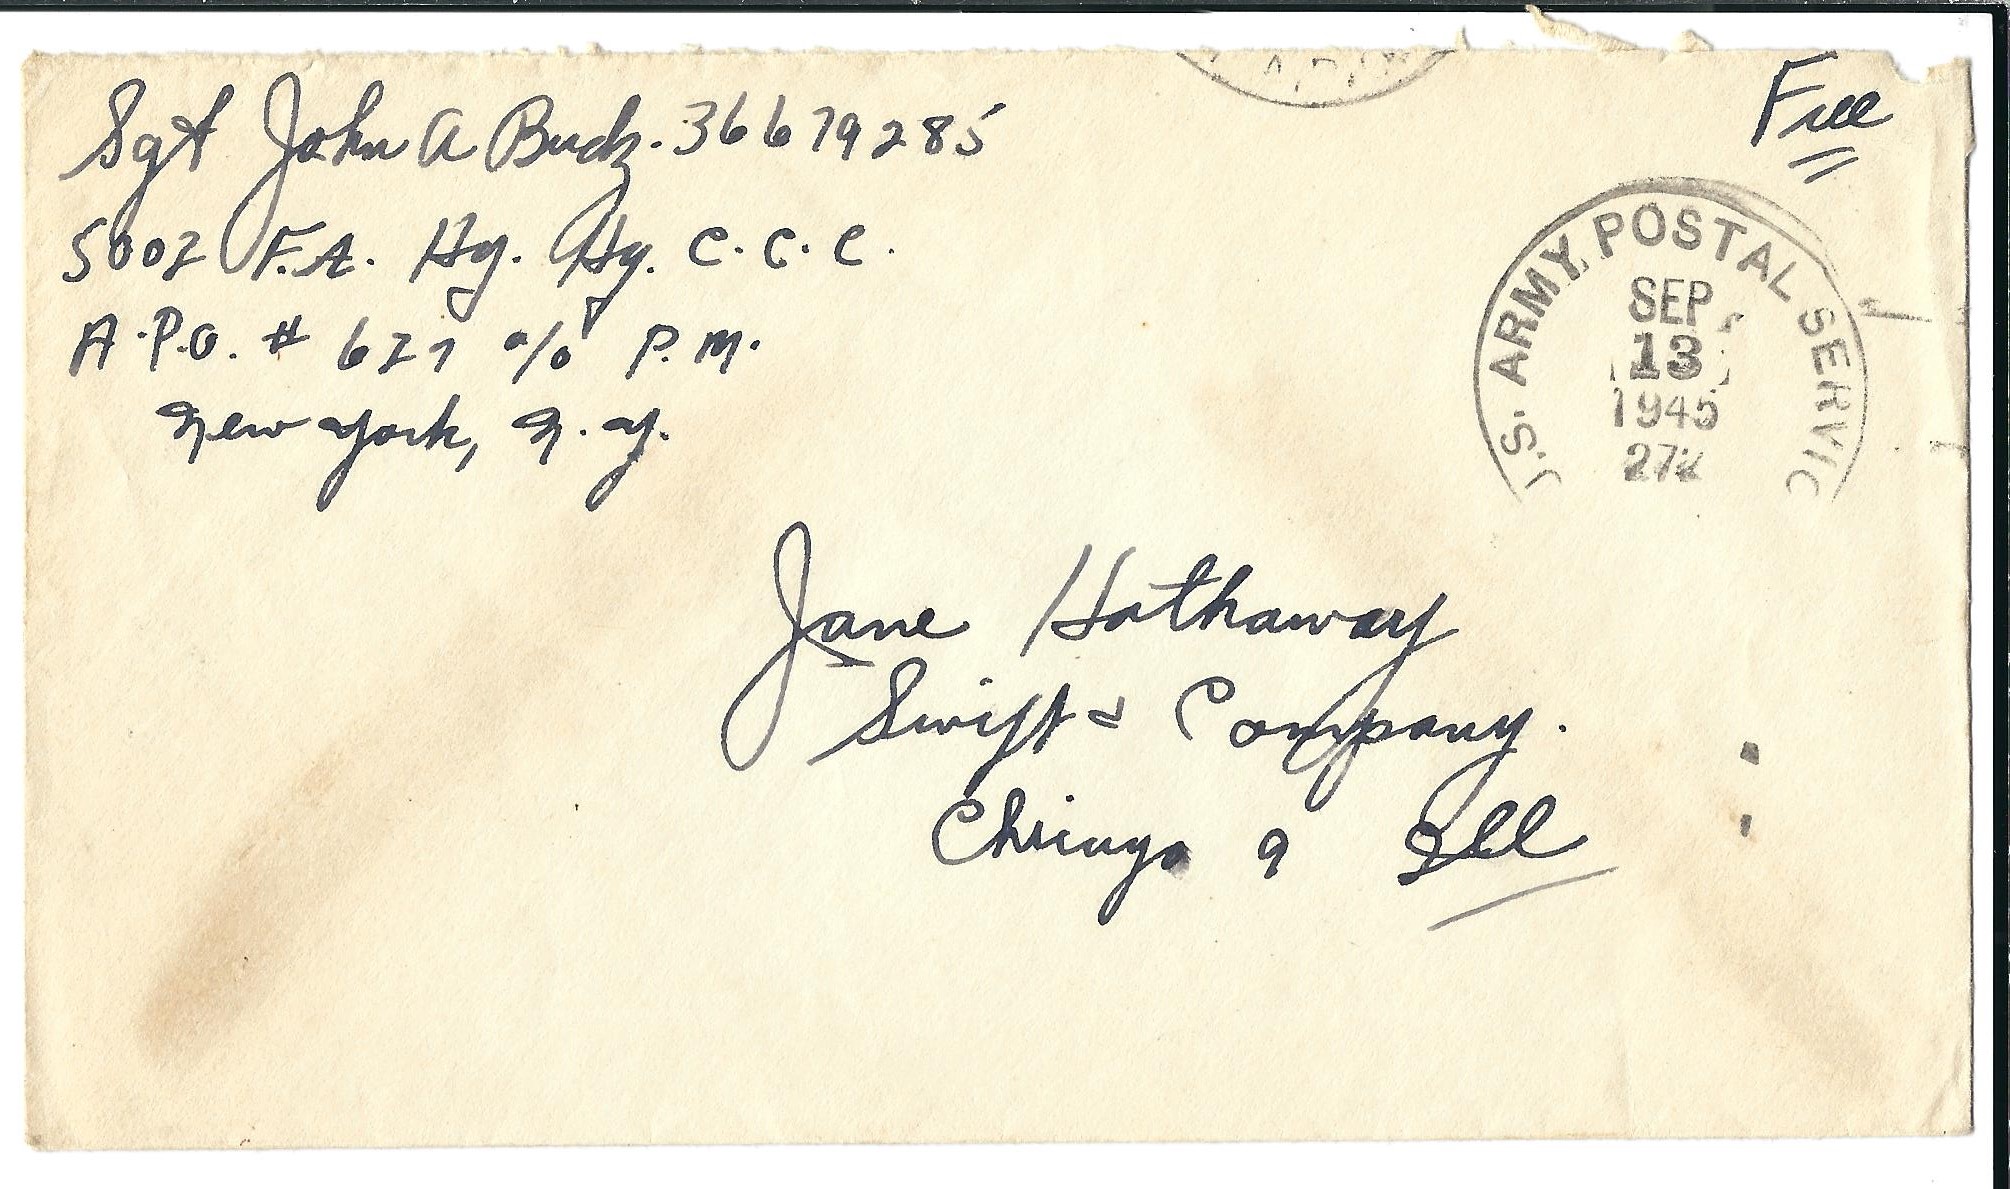 Sgt John A Budz. 36679285
5002 F.A. Hq. Hq. C.C.C.
A.P.O. # 627 c/o P.M.
New York, N.Y.
Free
U.S. ARMY POSTAL SERVIC
SEP
13
1945
272
Jane Hathaway
Swift & Company.
Chicago 9 Ill